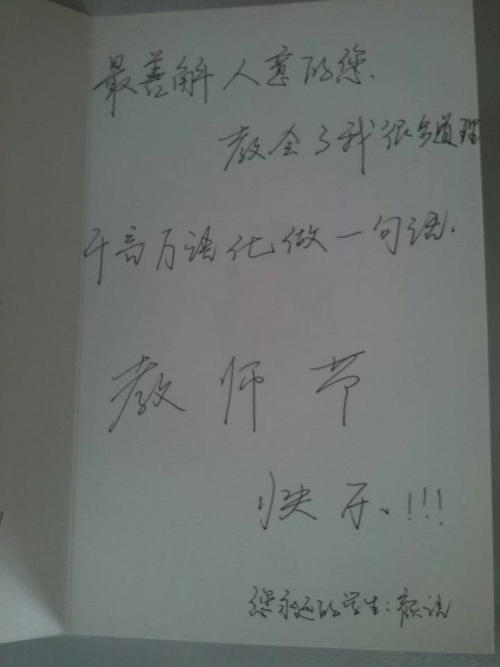 最善解人意的您.
教会了我很多道理
千言万语化做一句话.
教师节
快乐!!!
您永远的学生:颜